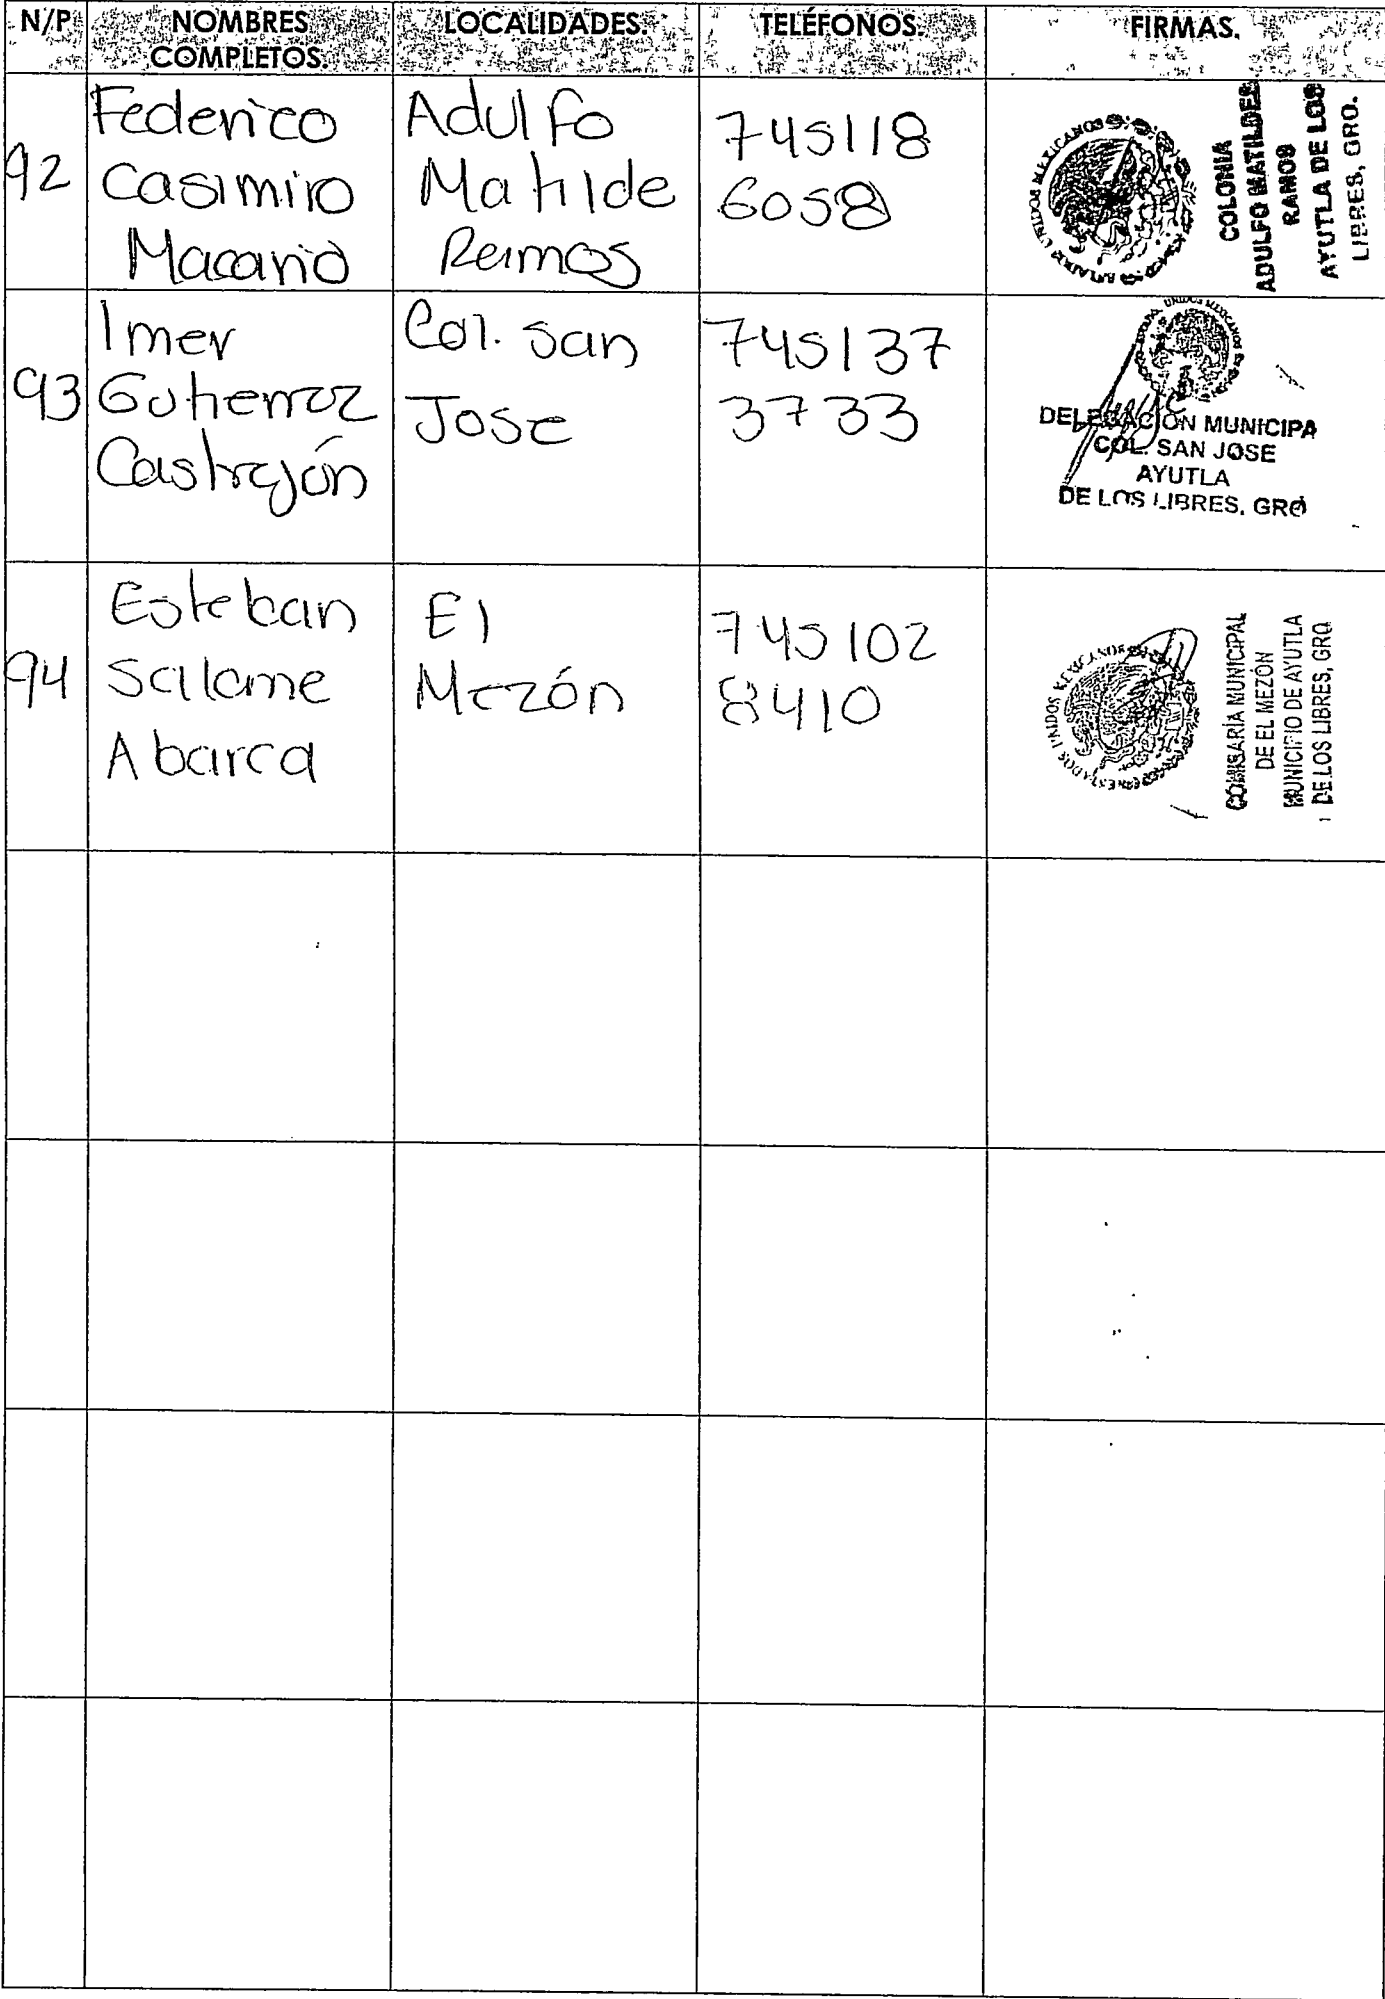 N/P
NOMBRES
COMPLETOS.
LOCALIDADES.
TELÉFONOS.
FIRMAS.
92
Federico
Casimiro
Macario
Adulfo
Matilde
Ramos
745118
6058
UNIDOS MEXICANOS
COLONIA
ADULFO MATILDES
RAMOS
AYUTLA DE LOS
LIBRES, GRO.
93
Imer
Gutierrez
Castrejón
Col. San
Jose
745137
3733
UNIDOS MEXICANOS
DELEGACIÓN MUNICIPA
COL. SAN JOSE
AYUTLA
DE LOS LIBRES, GRO
94
Esteban
Salame
Abarca
El
Mezón
745102
8410
ESTADOS UNIDOS MEXICANOS
COMISARÍA MUNICIPAL
DE EL MEZÓN
MUNICIPIO DE AYUTLA
DE LOS LIBRES, GRO